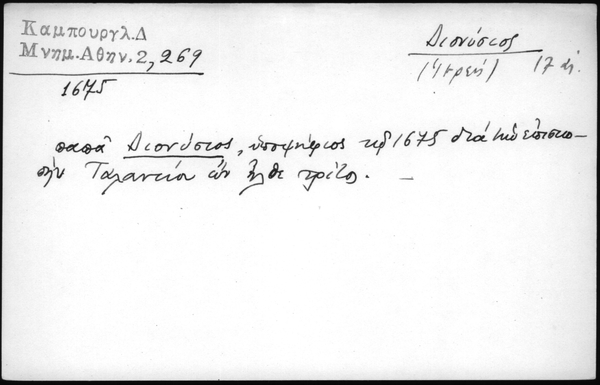 Καμπουργλ.Δ
Μνημ.Αθην.2,269
1675
Διονύσιος
(ἱερεύς) 17 αἰ.
παπᾶ Διονύσιος, ὑποψήφιος τῷ 1675 διά τήν ἐπισκο-
πήν Ταλαντίου ὤν ἦλθε τρίτος. —